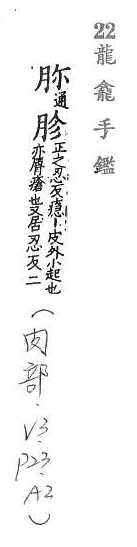 22龍龕手鑑
通胗正之忍反癮丨皮外小起也
亦脣瘡也又居忍反二
(肉部.V3.P23.A2)